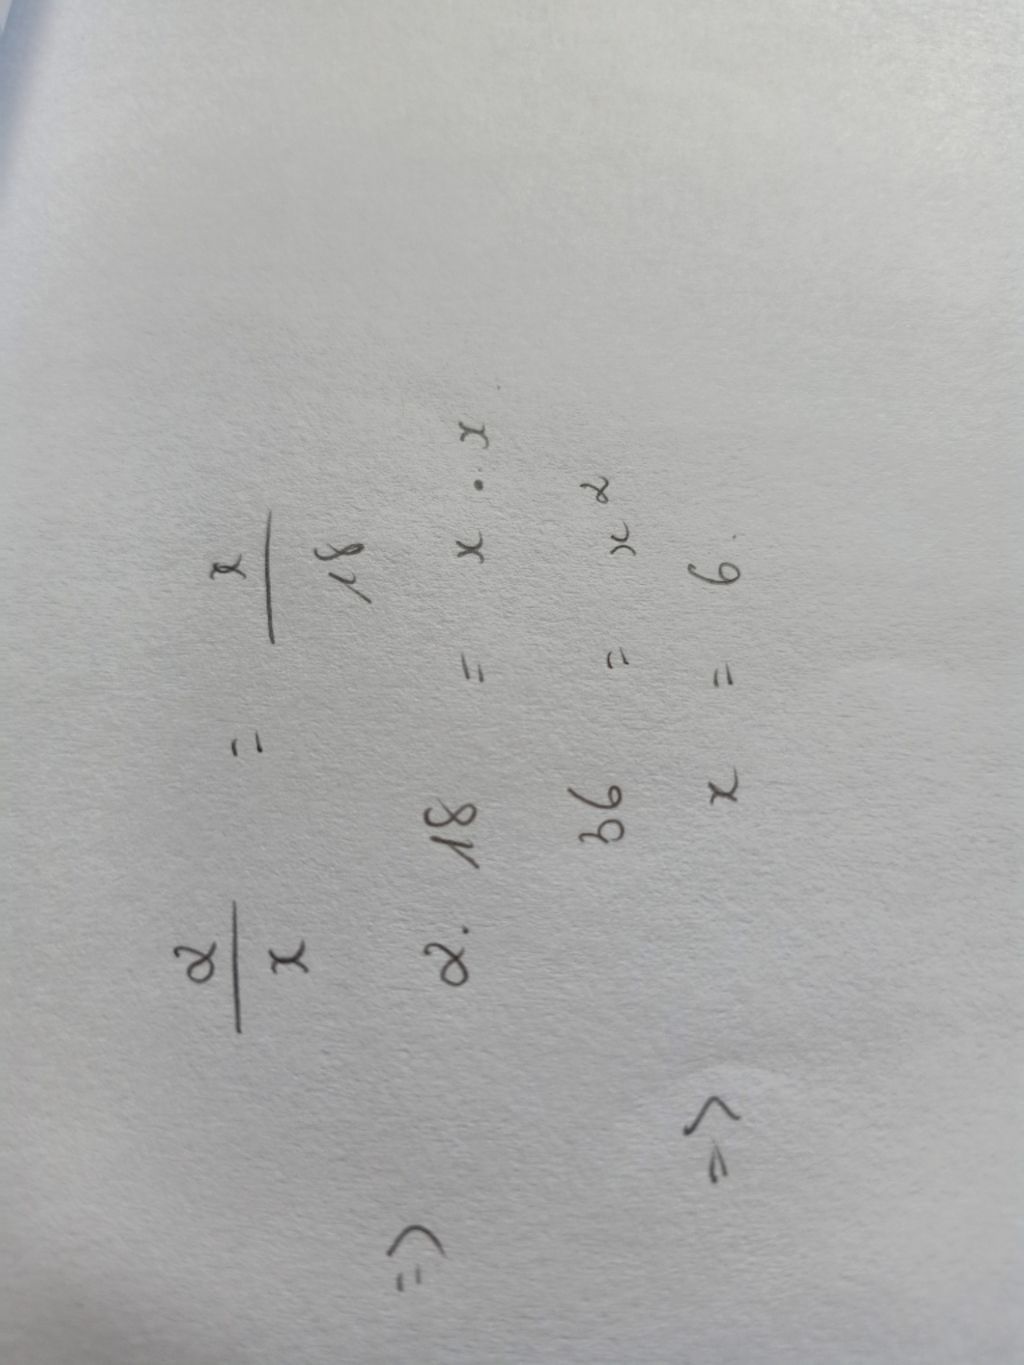 2/x = x/18
=> 2. 18 = x . x
36 = x²
=> x = 6.